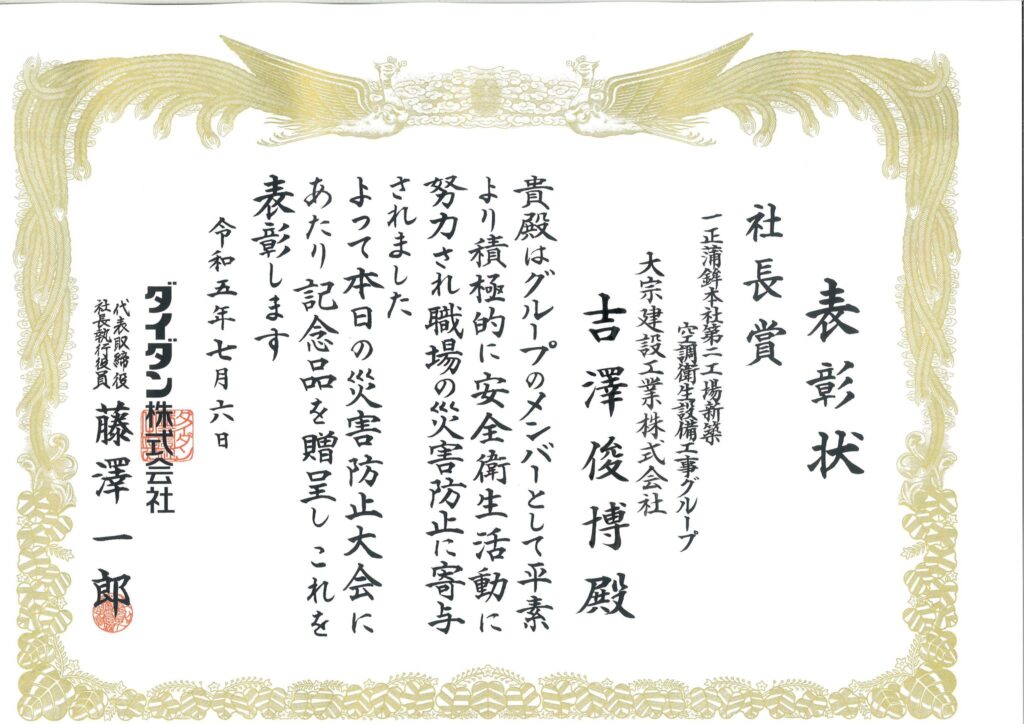 表彰状
社長賞
一正蒲鉾本社第二工場新築
空調衛生設備工事グループ
大宗建設工業株式会社
吉澤俊博殿
貴殿はグループのメンバーとして平素
より積極的に安全衛生活動に
努力され職場の災害防止に寄与
されました
よって本日の災害防止大会に
あたり記念品を贈呈しこれを
表彰します
令和五年七月六日
ダイダン株式会社
代表取締役
社長執行役員
藤澤一郎